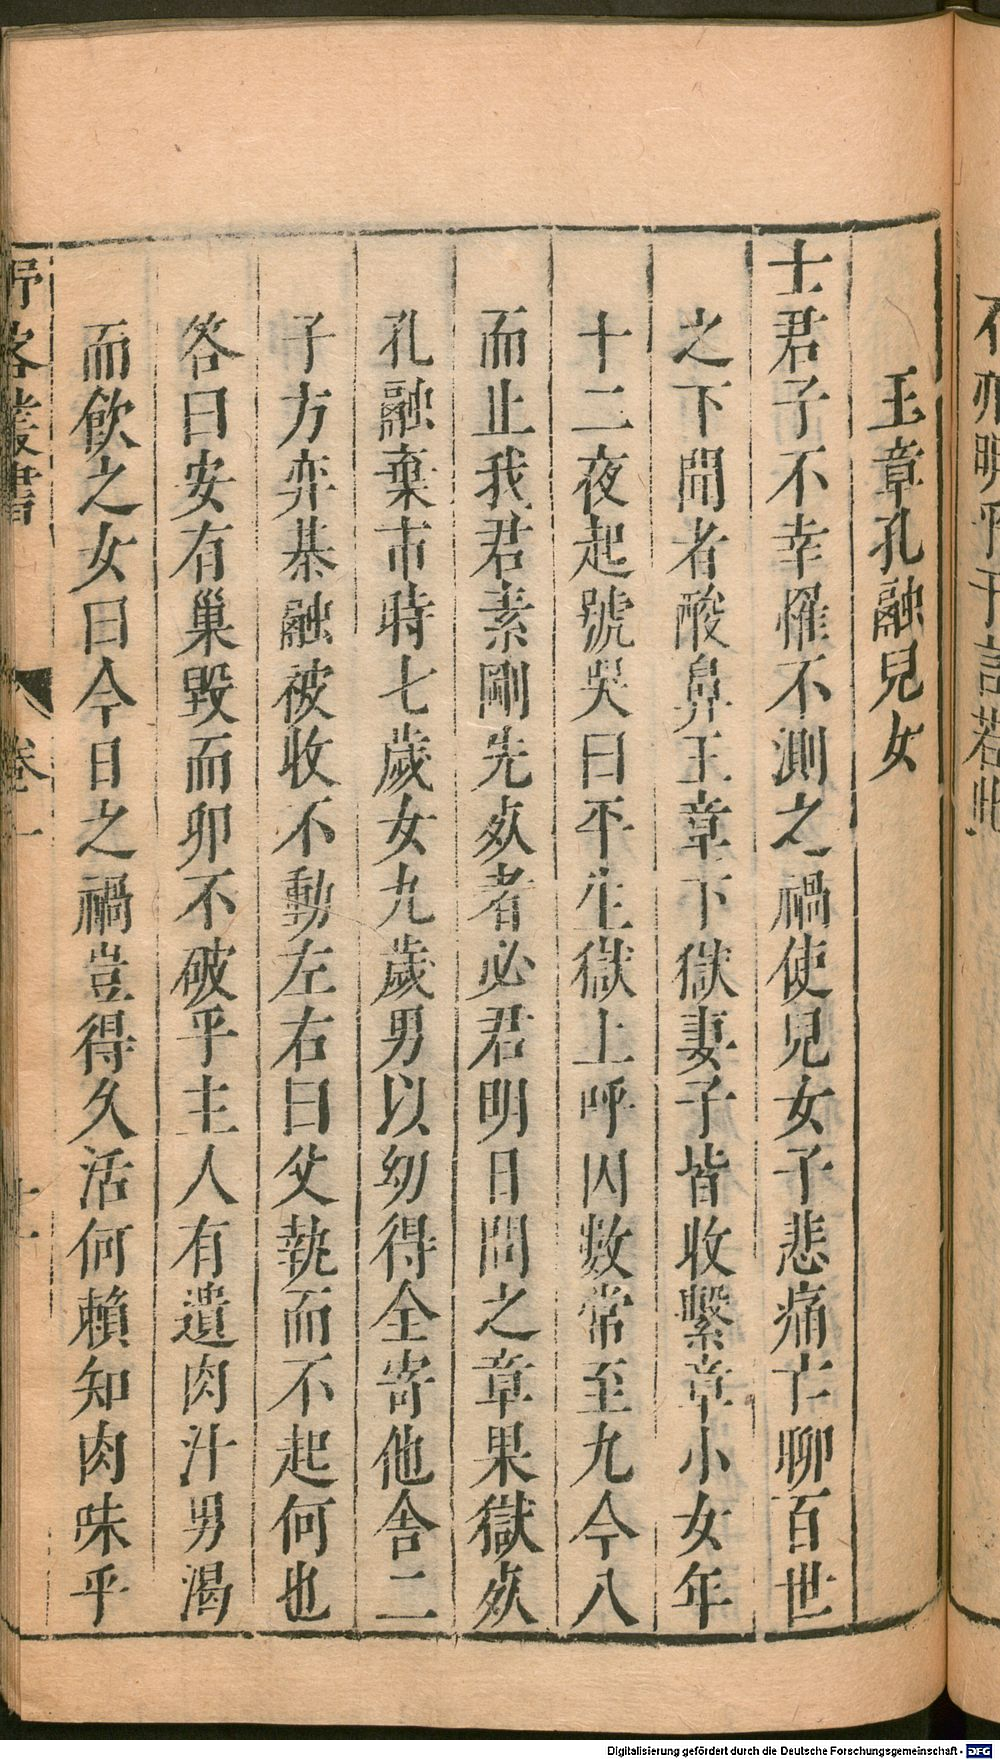 王章孔融兒女
士君子不幸罹不測之禍使兒女子悲痛亡聊百世
之下聞者酸鼻王章下獄妻子皆收繫章小女年
十二夜起號哭曰平生獄上呼囚數常至九今八
而止我君素剛先死者必君明日問之章果獄死
孔融棄市時七歲女九歲男以幼得全寄他舍二
子方弈棊融被收不動左右曰父執而不起何也
答曰安有巢毀而卵不破乎主人有遺肉汁男渴
而飲之女曰今日之禍豈得久活何賴知肉味乎
野客叢書 卷一 十一
Digitalisierung gefördert durch die Deutsche Forschungsgemeinschaft - DFG